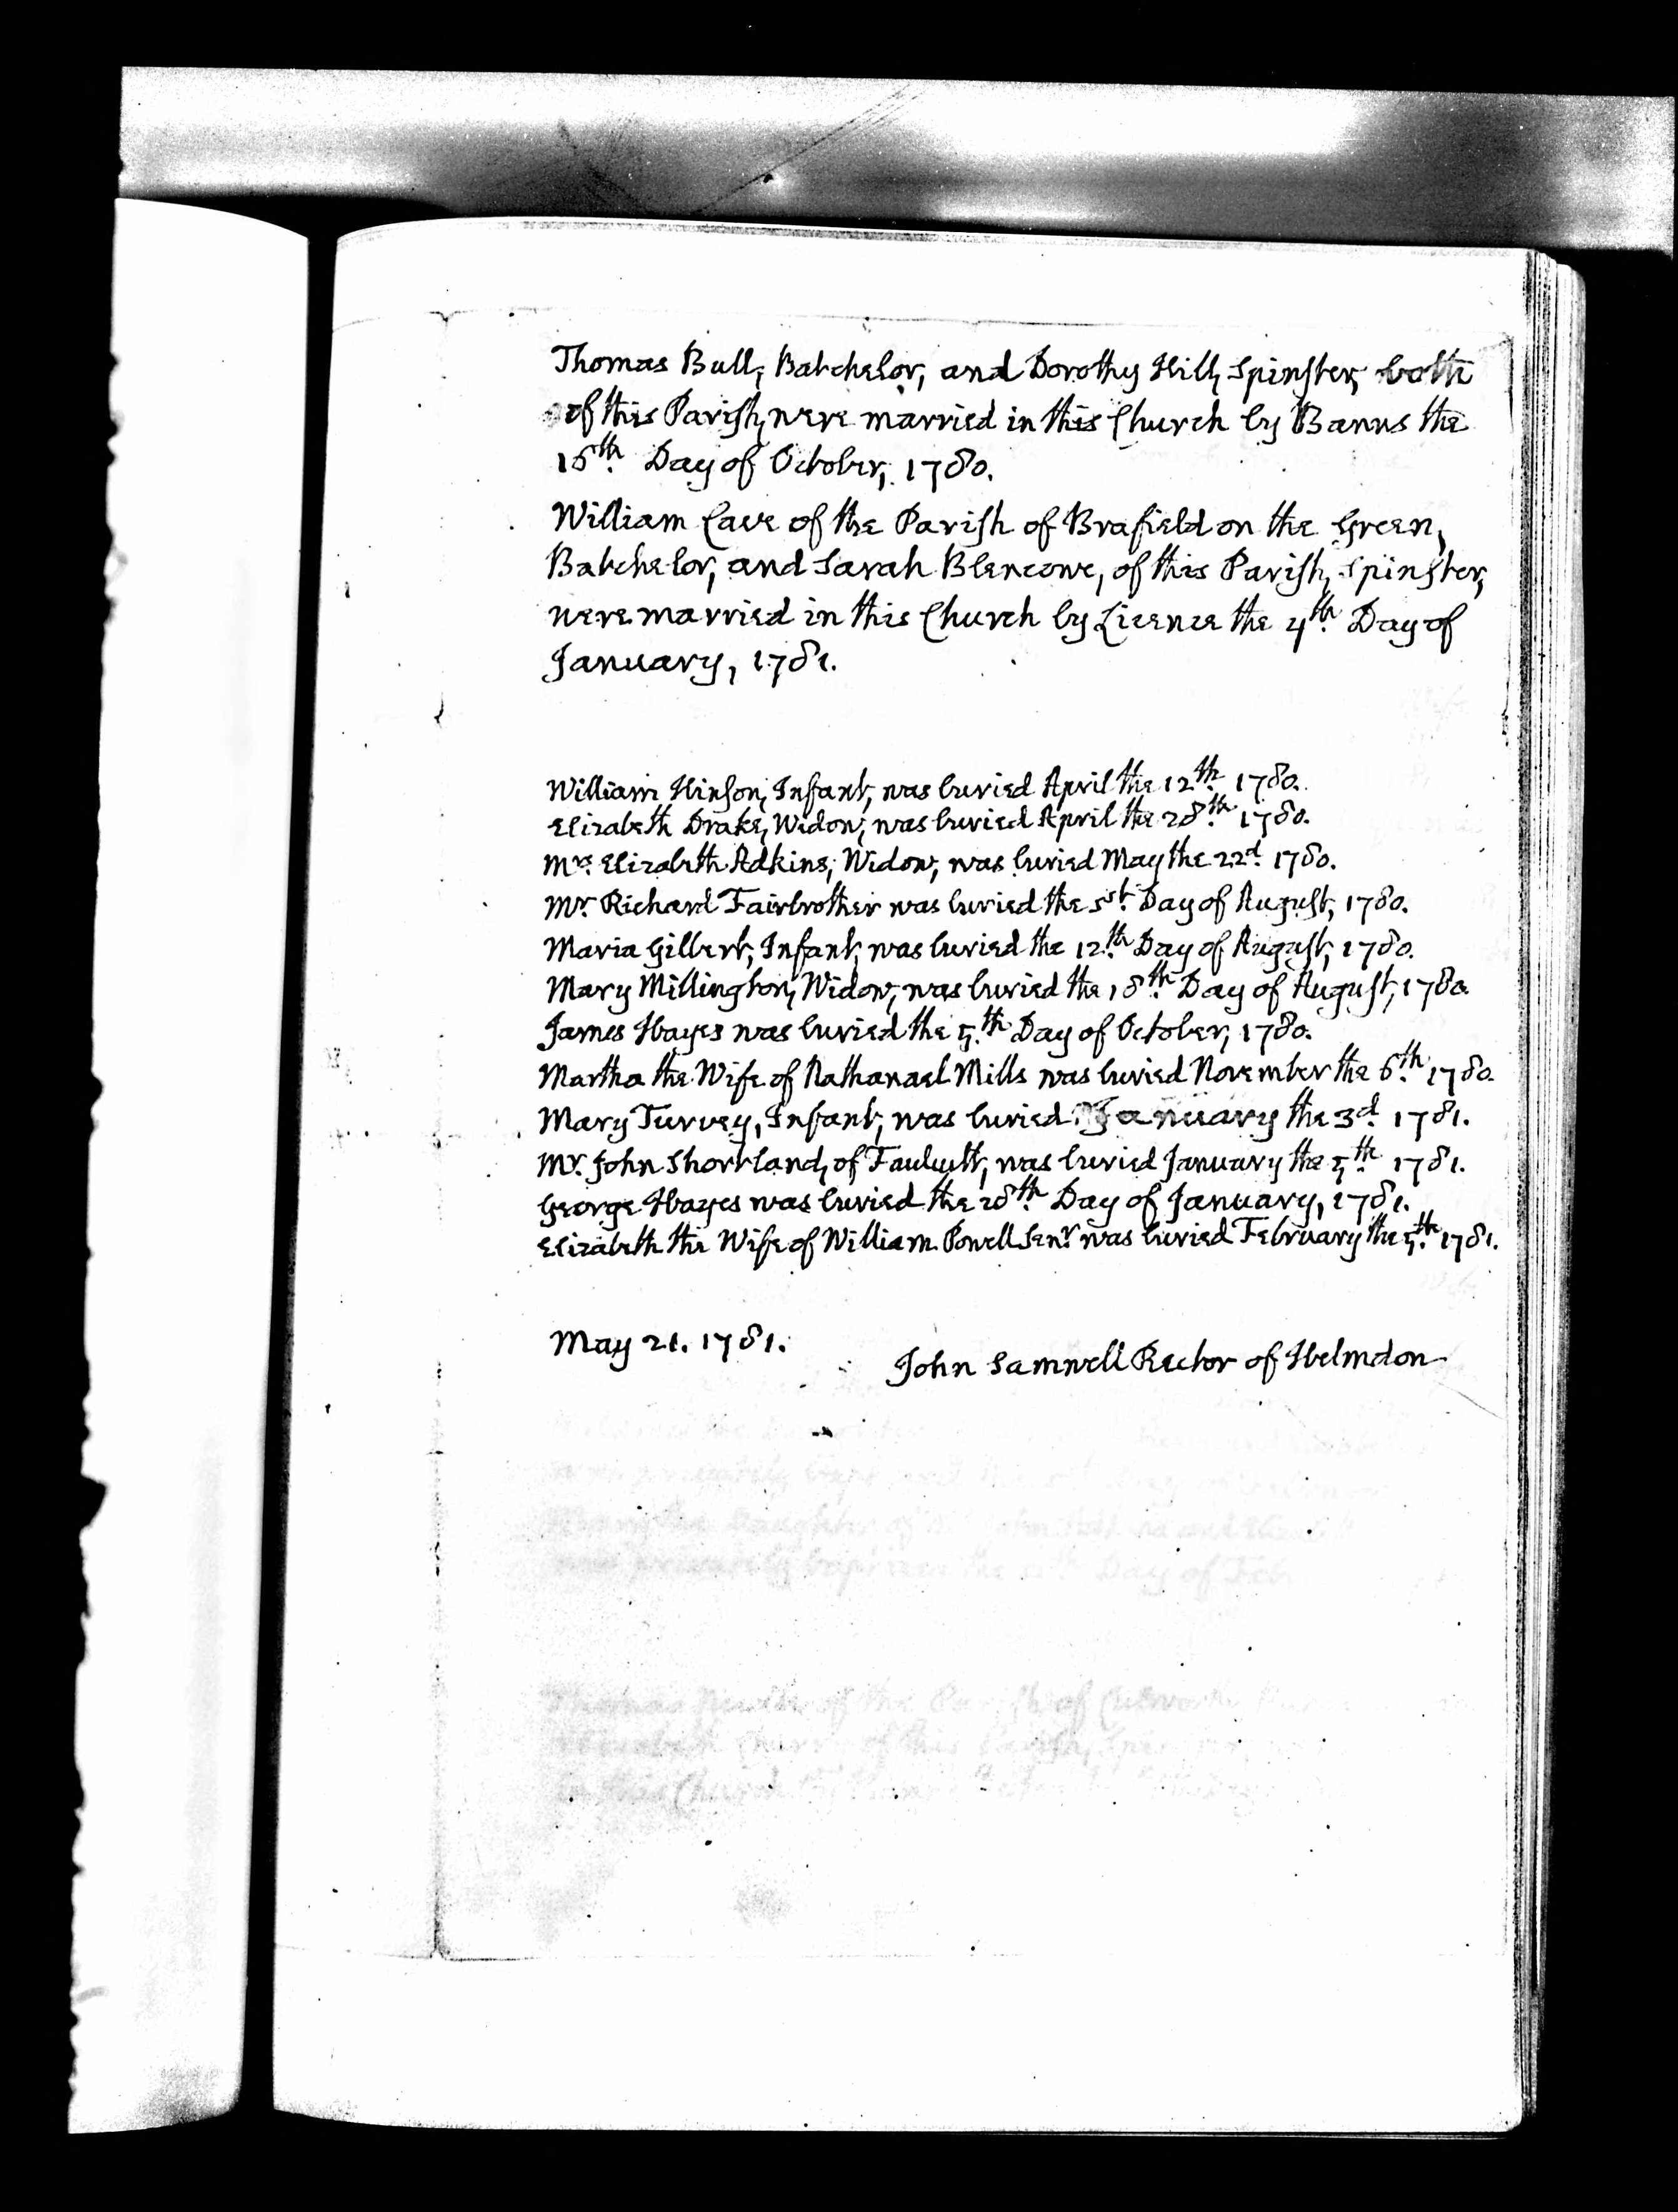 Thomas Bull, Batchelor, and Dorothy Hill, Spinster, both
of this Parish, were married in this Church by Banns the
16th. Day of October, 1780.
William Cave of the Parish of Brafield on the Green,
Batchelor, and Sarah Blencowe, of this Parish, Spinster,
were married in this Church by Licence the 4th. Day of
January, 1781.
William Hinson, Infant, was buried April the 12th. 1780.
Elizabeth Drake, Widow, was buried April the 28th. 1780.
Mrs. Elizabeth Adkins, Widow, was buried May the 22d. 1780.
Mr. Richard Fairbrother was buried the 1st. Day of August, 1780.
Maria Gilbert, Infant, was buried the 12th. Day of August, 1780.
Mary Millington, Widow, was buried the 18th. Day of August, 1780.
James Hayes was buried the 5th. Day of October, 1780.
Martha the Wife of Nathanael Mills was buried November the 6th. 1780.
Mary Turvey, Infant, was buried January the 3d. 1781.
Mr. John Shortland, of Faulcutt, was buried January the 5th. 1781.
George Hayes was buried the 28th. Day of January, 1781.
Elizabeth the Wife of William Powell Senr. was buried February the 5th. 1781.
May 21. 1781.
John Samwell Rector of Helmdon